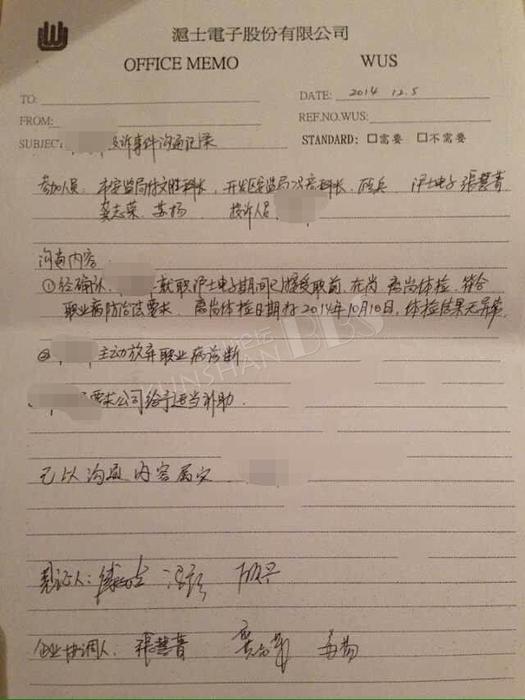 滬士電子股份有限公司
OFFICE MEMO WUS
TO:
DATE: 2014 12.5
FROM:
REF.NO.WUS:
SUBJECT: 投诉事件沟通记录
STANDARD: □需要 □不需要
参加人员: 市安监局 科长, 开发区安监局 科长, 沪士电子 張慧菁
龚志荣、苏杨 投诉人员
沟通内容
①经确认, 就职沪士电子期间已接受职前、在岗、离岗体检, 符合
职业病防治法要求. 离岗体检日期为2014年10月10日, 体检结果无异常.
② 主动放弃职业病诊断
要求公司给予适当补助.
KUNSHAN BBS 论坛
已以沟通内容属实
见证人:
企业协调人: 張慧菁